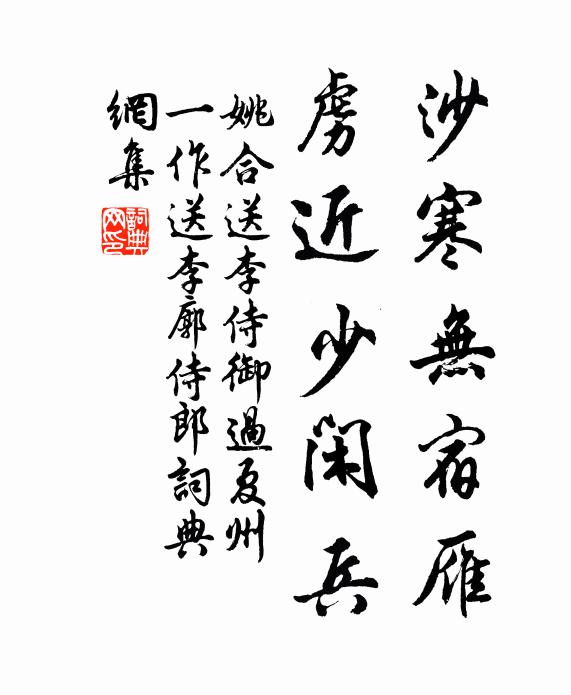 沙寒無宿雁
虜近少閑兵
姚合送李侍御過夏州
一作送李廓侍郎詞典
網集
詞典
网印